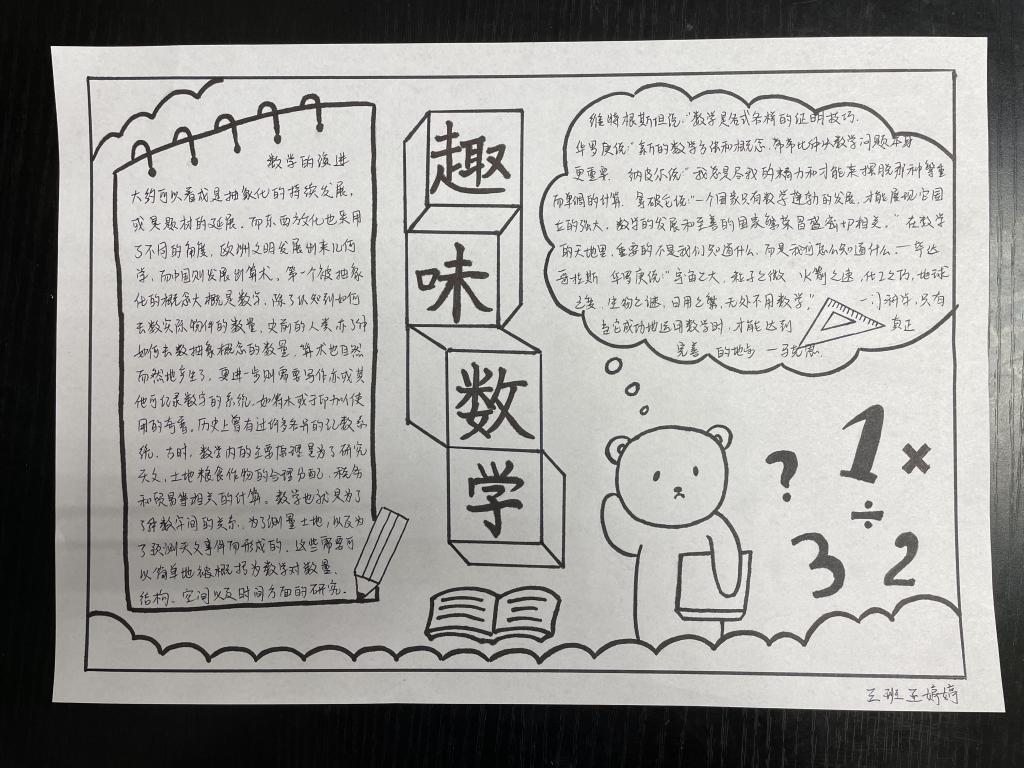 数学的演进
大约可以看成是抽象化的持续发展,
或是题材的延展。而东西方文化也采用
了不同的角度,欧洲文明发展出来几何
学,而中国则发展出算术。第一个被抽象
化的概念大概是数字,除了认知到如何
去数实际物件的数量,史前的人类亦了解
如何去数抽象概念的数量,算术也自然
而然地产生了。更进一步则需要写作亦或其
他可纪录数字的系统,如符木或于印加人使
用的奇普。历史上曾有过许多各异的记数系
统。古时,数学内的主要原理是为了研究
天文,土地粮食作物的合理分配,税务
和贸易等相关的计算。数学也就是为了
了解数字间的关系,为了测量土地,以及为
了预测天文事件而形成的。这些需要可
以简单地被概括为数学对数量、
结构、空间以及时间方面的研究。
趣
味
数
学
维特根斯坦说:“数学是各式各样的证明技巧.
华罗庚说:“新的数学方法和概念,常常比解决数学问题本身
更重要. 纳皮尔说:“我总是尽我的精力和才能来摆脱那种繁重
而单调的计算. 拿破仑说:“一个国家只有数学蓬勃的发展,才能展现它国
立的强大。数学的发展和至善的国家繁荣昌盛密切相关。”在数学
的天地里,重要的不是我们知道什么,而是我们怎么知道什么.—毕达
哥拉斯 华罗庚说:“宇宙之大,粒子之微 火箭之速,化工之巧,地球
之变,生物之谜,日用之繁,无处不用数学。” 一门科学,只有
当它成功地运用数学时,才能达到 真正
完善 的地步 —马克思.
? 1 ×
÷
3 2
三班 王婷婷